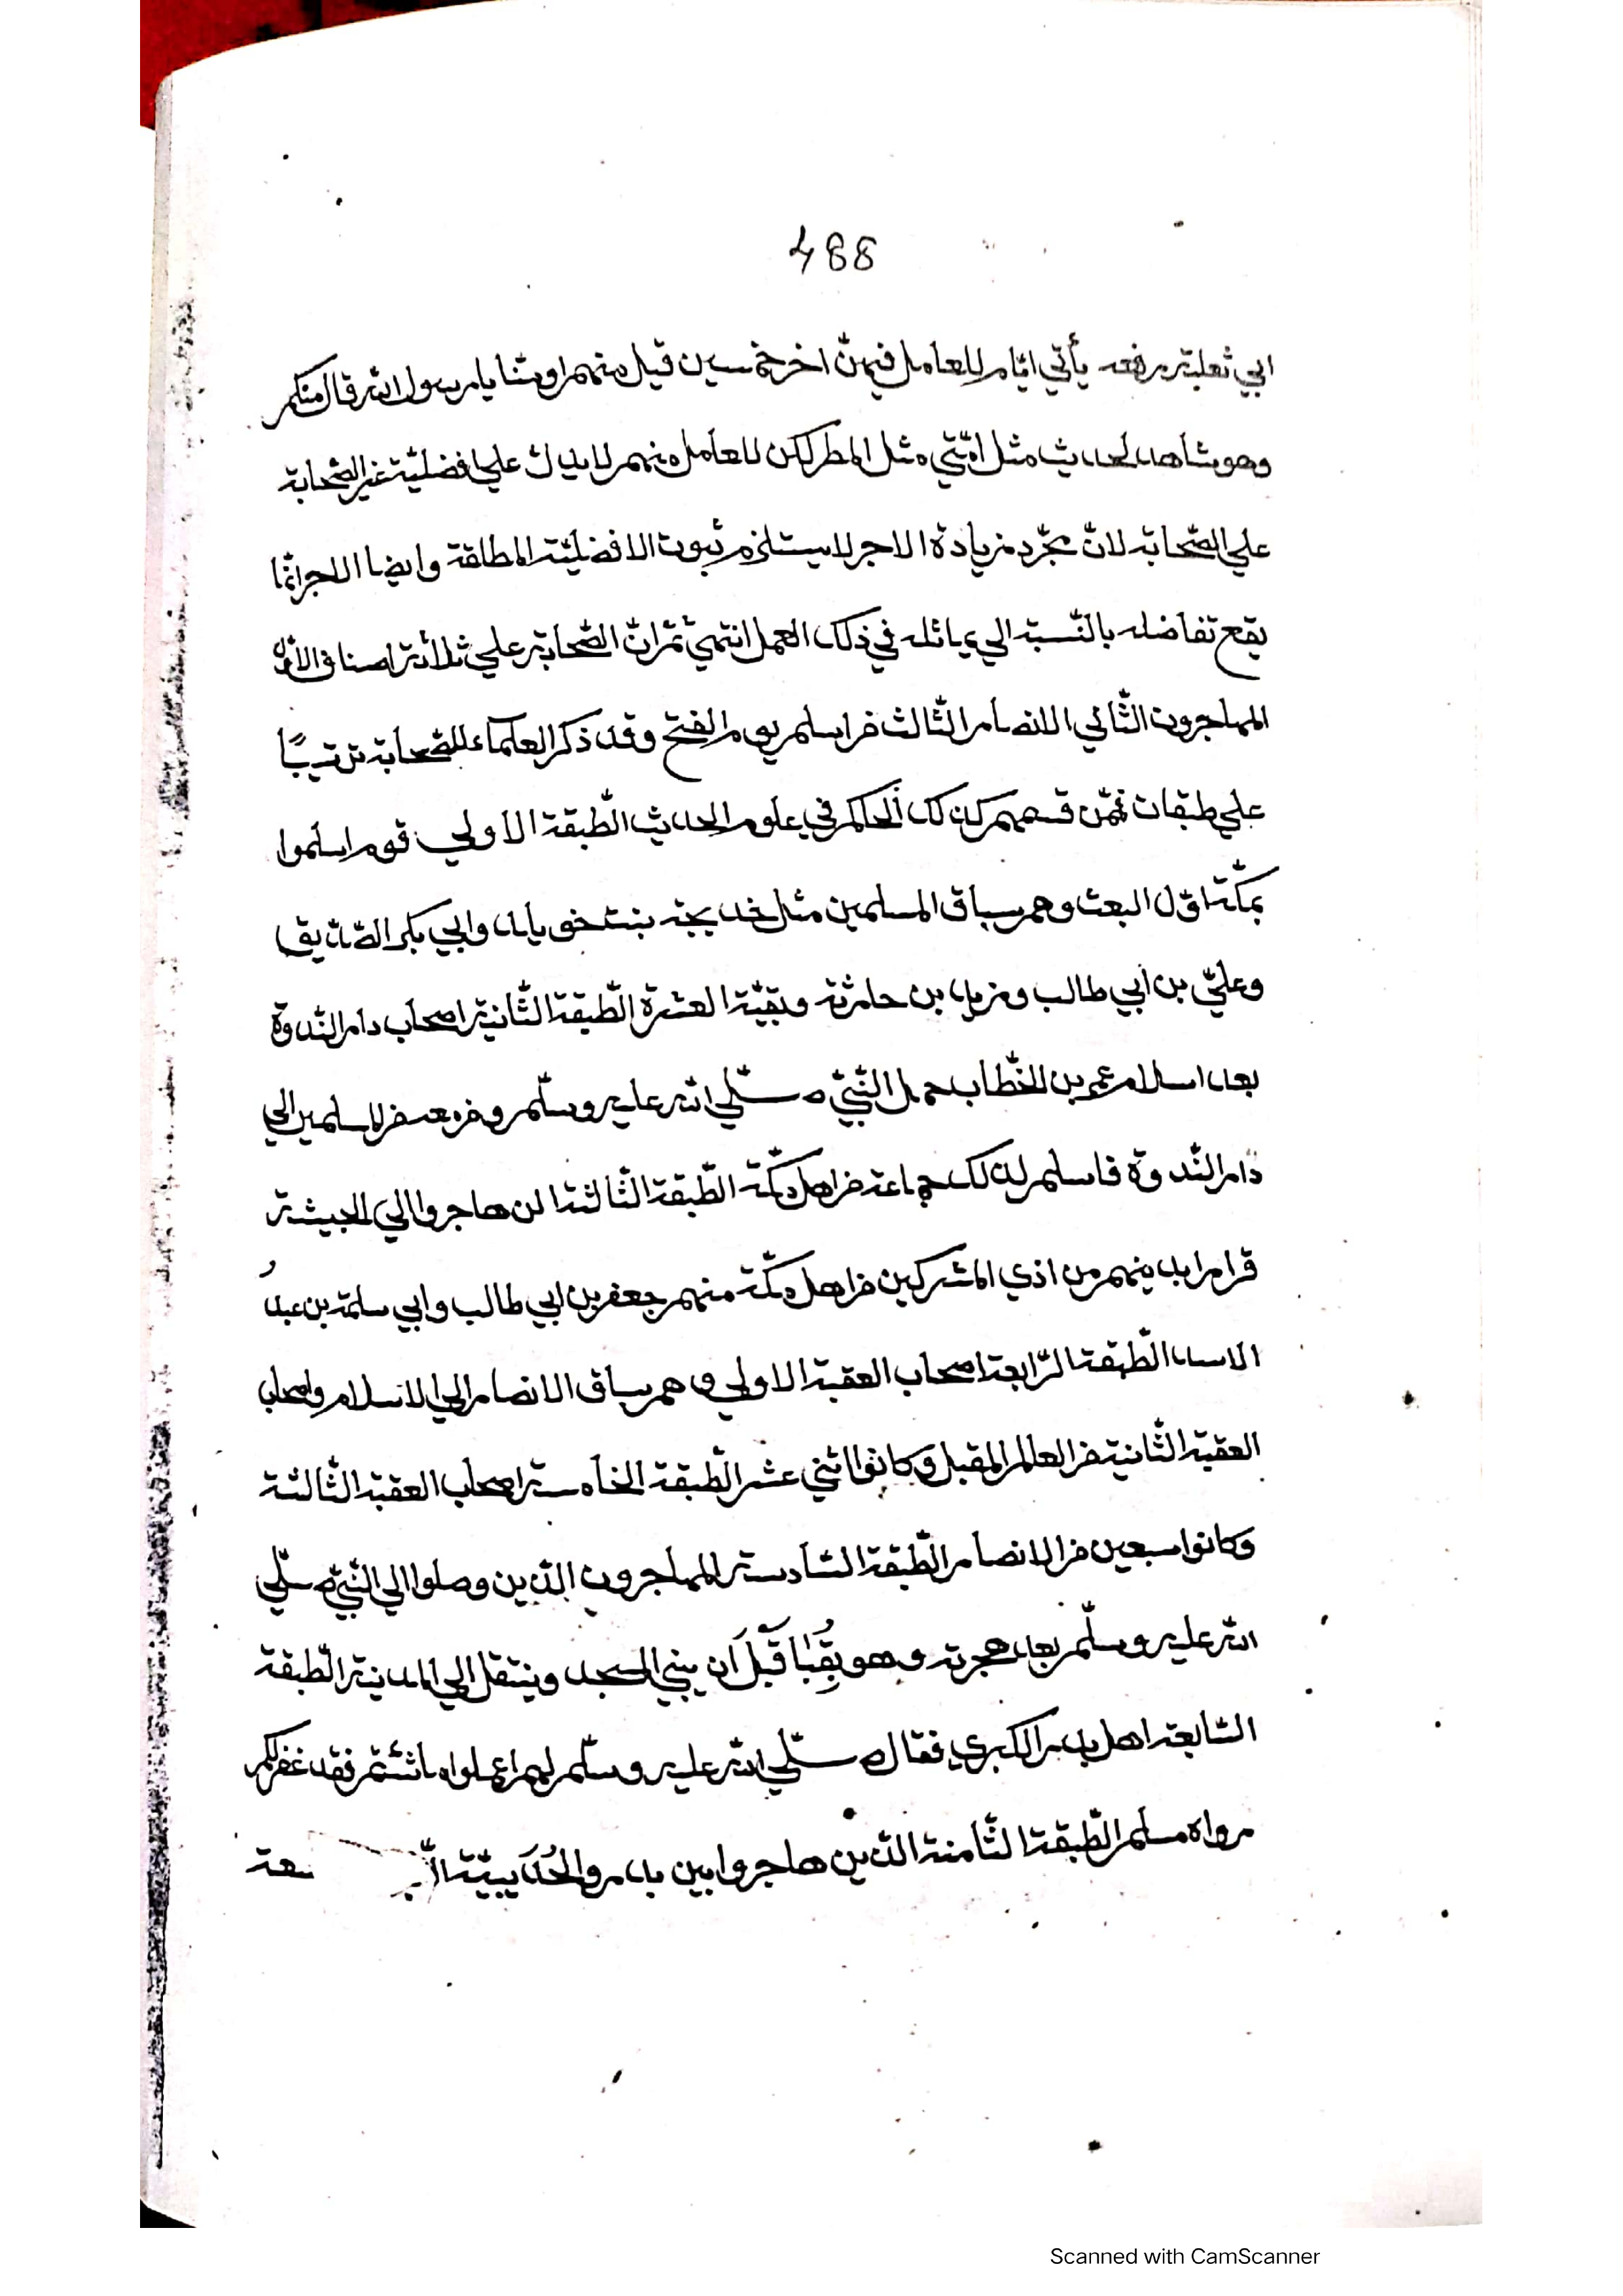 488
ابي ثعلبة رفعه يأتي ايّام للعامل فيهنّ اجر خمسين قيل منهم او منّا يا رسول الله قال منكم
وهو شاهد لحديث مثل امّتي مثل المطر لكن للعامل منهم لا يدل علي افضليّة غير الصّحابة
علي الصّحابة لانّ مجرّد زيادة الاجر لا يستلزم ثبوت الافضليّة المطلقة وايضا الاجر انّما
يقع تفاضله بالنّسبة الي ما يماثله في ذلك العمل انتهيٰ ثمّ انّ الصّحابة علي ثلاثة اصناف الأوّل
المهاجرون الثّاني الانصار الثّالث من اسلم يوم الفتح وقد ذكر العلماء للصّحابة ترتيبًا
علي طبقات فممّن قسمهم كذلك الحاكم في علوم الحديث الطّبقة الأولي قوم اسلموا
بمكّة اوّل البعث وهم سباق المسلمين مثل خديجة بنت خويلد وابي بكر الصّدّيق
وعليّ بن أبي طالب وزيد بن حارثة وبقيّة العشرة الطّبقة الثّانية اصحاب دار النّدوة
بعد اسلام عمر بن الخطّاب حمل النّبيّ صلّي الله عليه وسلّم ومن معه من المسلمين الي
دار النّدوة فاسلم لذلك جماعة من اهل مكّة الطّبقة الثّالثة الذين هاجروا الي الحبشة
فرارا بدينهم من اذي المشركين من اهل مكّة منهم جعفر بن ابي طالب وابي سلمة بن عبد
الاسد الطّبقة الرّابعة اصحاب العقبة الاولي وهم سباق الانصار الي الاسلام واصحاب
العقبة الثّانية من العالم المقبل وكانوا اثني عشر الطّبقة الخامسة اصحاب العقبة الثّالثة
وكانوا سبعين من الانصار الطّبقة السّادسة المهاجرون الذّين وصلوا الي النّبيّ صلّي
الله عليه وسلّم بعد هجرته وهو بِقُبَا قَبْلَ أن يبني المسجد وينتقل الي المدينة الطّبقة
السّابعة اهل بدر الكبري فقال صلّي الله عليه وسلّم لهم اعملوا ما شئتم فقد غفر لكم
رواه مسلم الطّبقة الثّامنة الذّين هاجروا بين بدر والحُدَيبيّة
Scanned with CamScanner